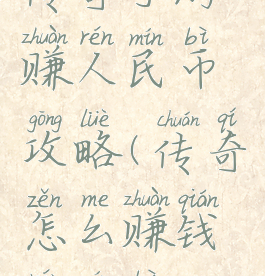 zhuàn rén mín bì
赚人民币
gōng lüè chuán qí
攻略(传奇
zěn me zhuàn qián
怎么赚钱